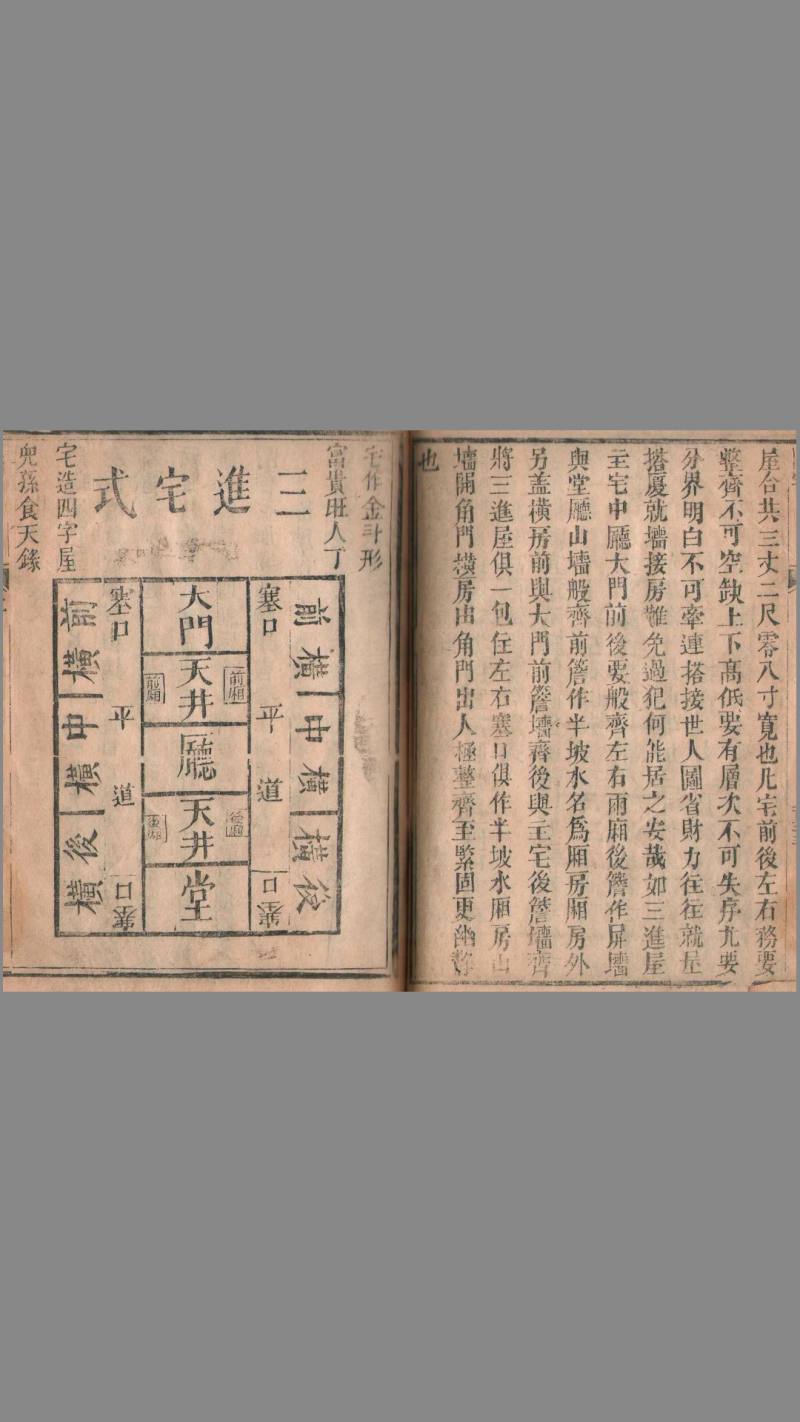 屋合共三丈二尺零八寸寬也凡宅前後左右務要
整齊不可空缺上下高低要有層次不可失序尤要
分界明白不可牽連搭接世人圖省財力往往就屋
搭廈就墻接房難免過犯何能居之安哉如三進屋
主宅中廳大門前後要般齊左右兩廂後簷作屏墻
與堂廳山墻般齊前簷作半坡水名爲廂房廂房外
另蓋橫房前與大門前簷墻齊後與主宅後簷墻齊
將三進屋俱一包在左右塞口俱作半坡水廂房出
墻開角門橫房由角門出入極整齊至緊固更幽靜
也
宅作金斗形
富貴旺人丁
三進宅式
前橫
中橫
後橫
塞口
平道
塞口
大門
天井
前廂
前廂
廳
天井
後廂
後廂
堂
塞口
平道
塞口
前橫
中橫
後橫
宅造四字屋
兒孫食天祿